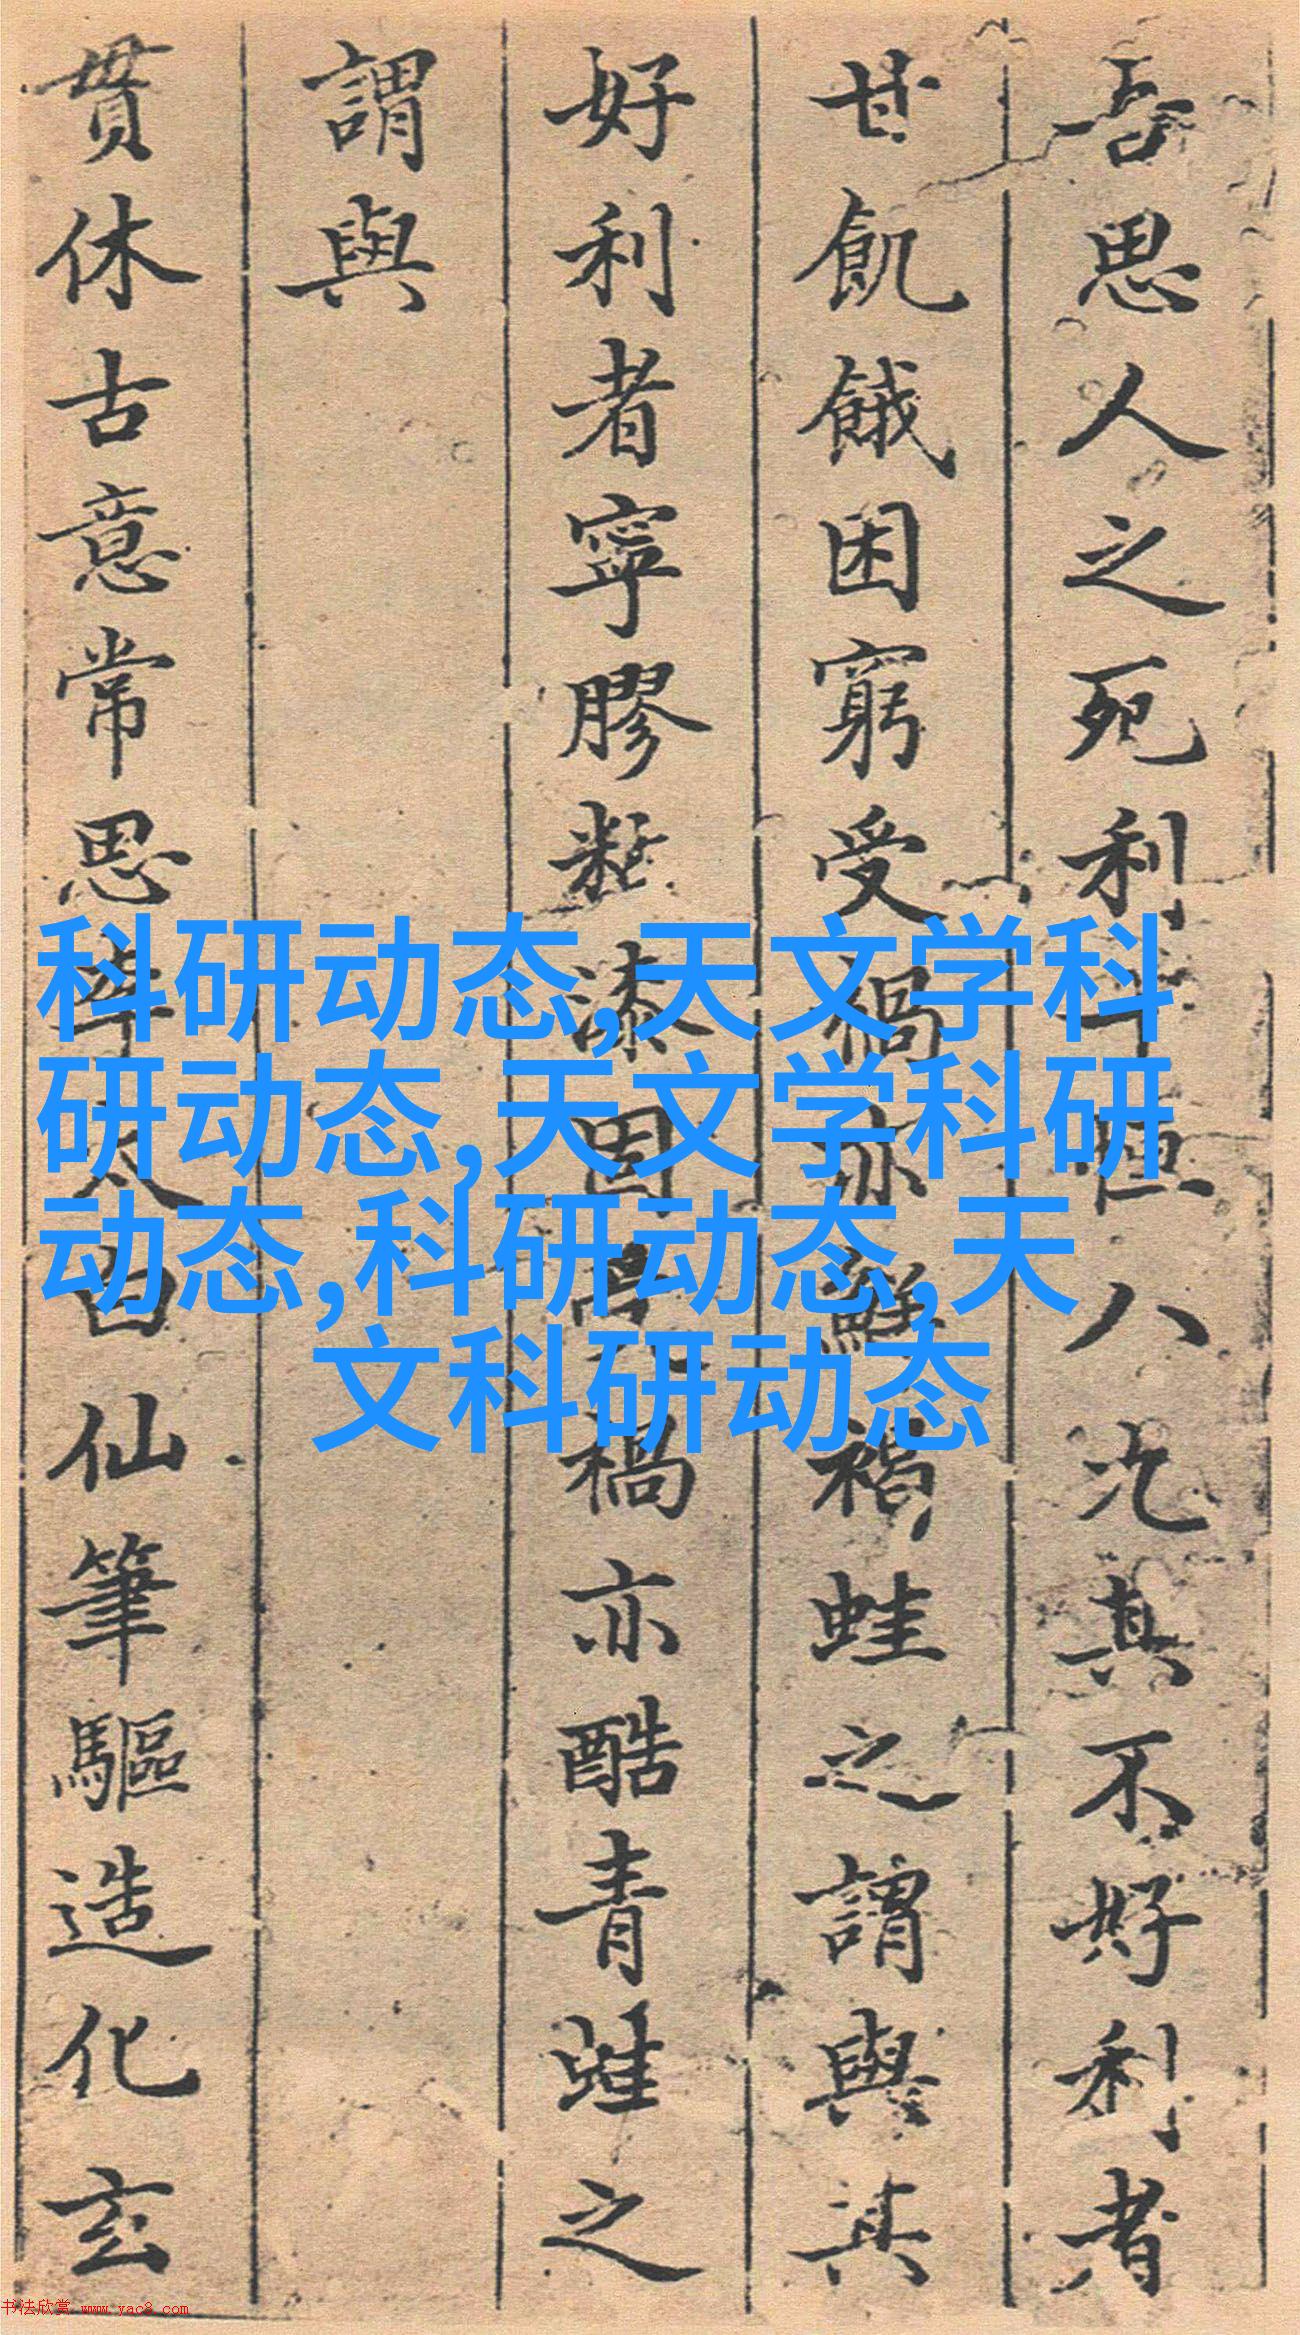 吾思人之死利十恒八九其不好利者
甘飢餓困窮受禍亦鮮禍蛙之謂與其
好利者寧膠黏漆固其禍亦酷青蛙之
謂與
貫休古意常思李太白仙筆驅造化玄
科研动态,天文学科
研动态,天文学科研
动态,科研动态,天
文科研动态
书法欣赏 www.yac8.com